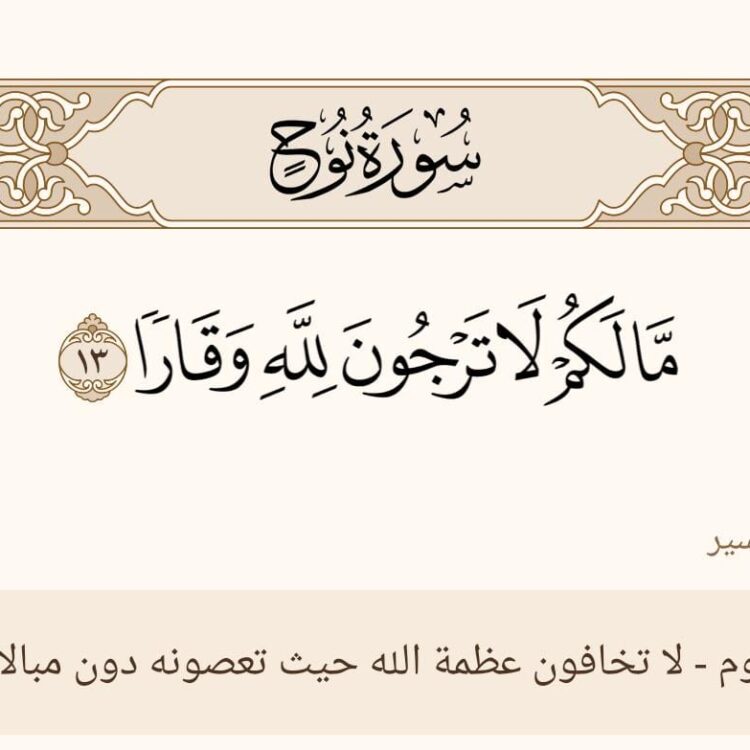 سُورَةُ نُوحٍ
مَّا لَكُمْ لَا تَرْجُونَ لِلَّهِ وَقَارًا ١٣
وم - لا تخافون عظمة الله حيث تعصونه دون مبالا